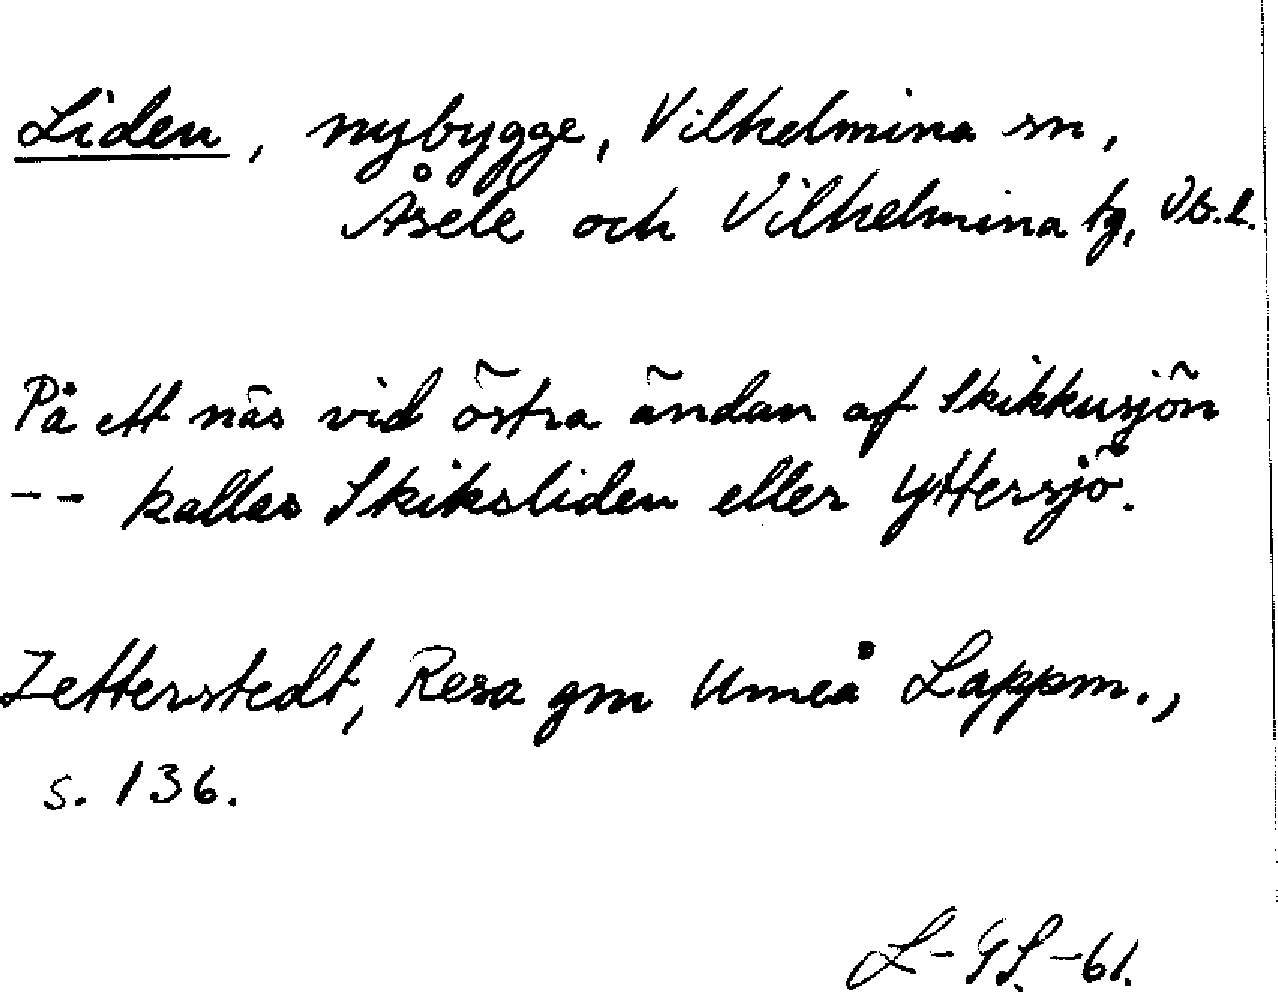 Liden, nybygge, Vilhelmina sn,
Åsele och Vilhelmina tg, Vb.l.
På ett näs vid östra ändan af Skikkusjön
-- kallas Skiksliden eller Yttersjö.
Zetterstedt, Resa gm Umeå Lappm.,
s. 136.
L-GS-61.